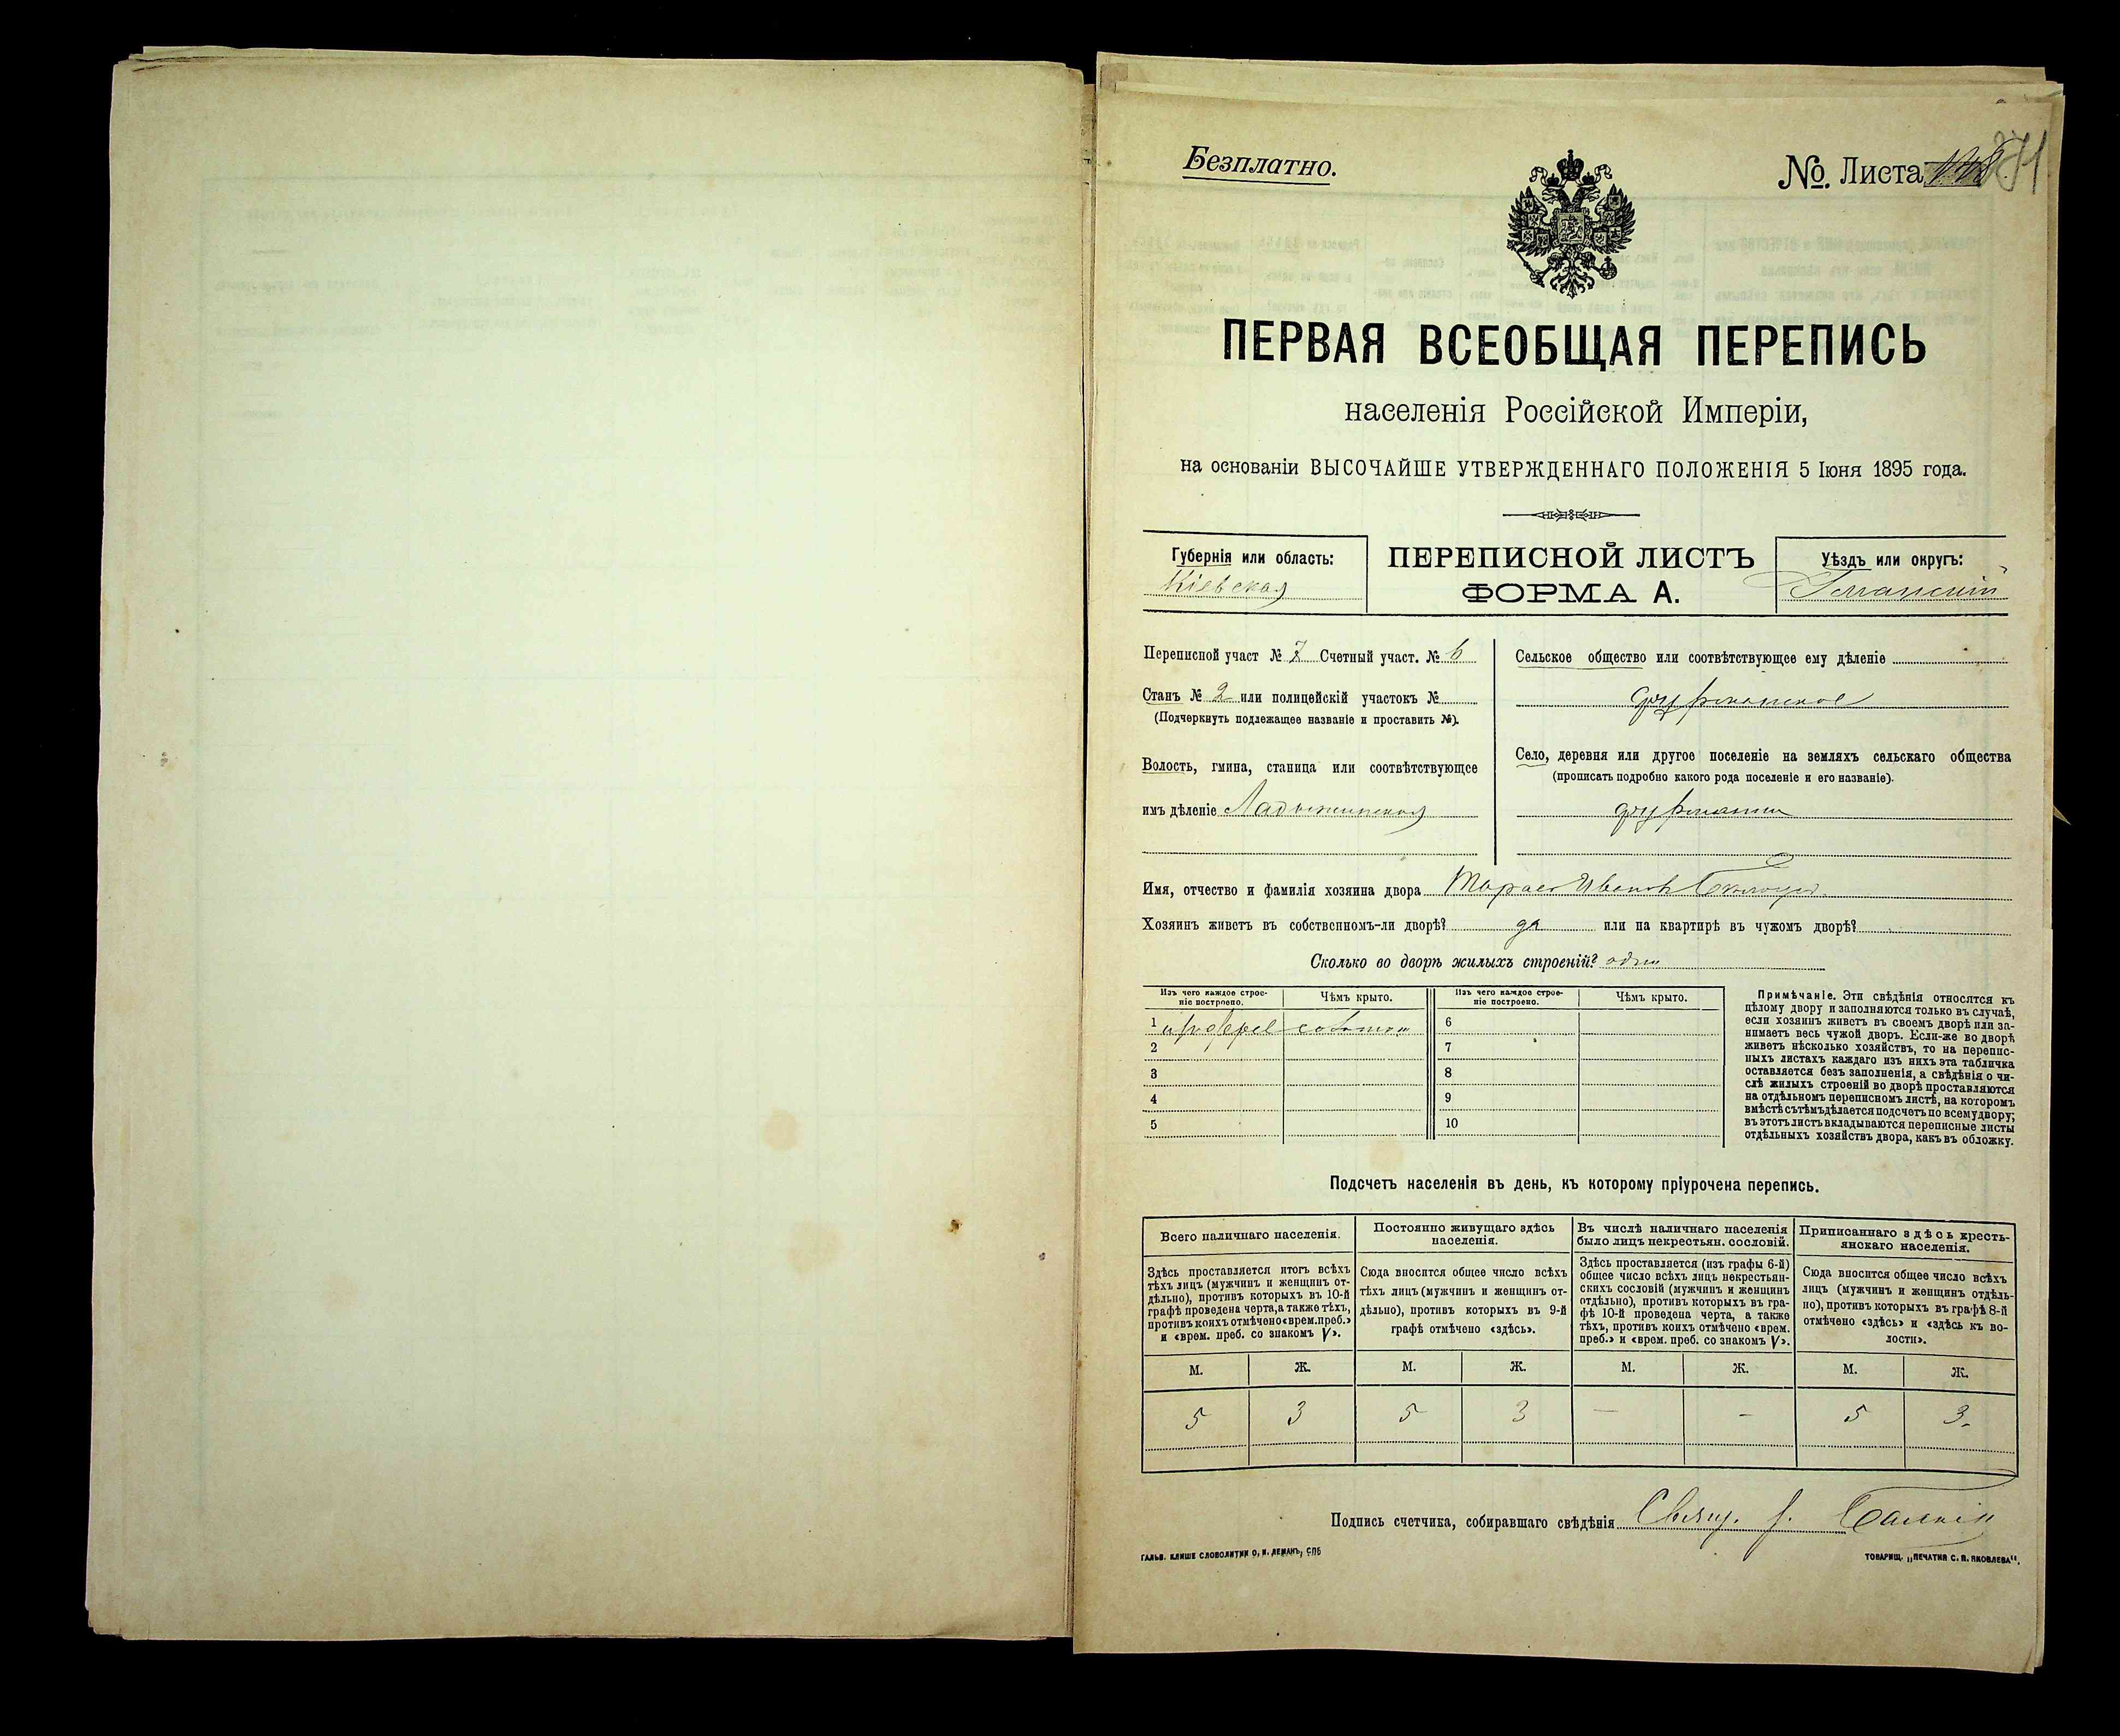 Безплатно.
№. Листа
ПЕРВАЯ ВСЕОБЩАЯ ПЕРЕПИСЬ
населенія Россійской Имперіи,
на основаніи ВЫСОЧАЙШЕ УТВЕРЖДЕННАГО ПОЛОЖЕНІЯ 5 Іюня 1895 года.
Губернія или область:
Кіевская
ПЕРЕПИСНОЙ ЛИСТЪ
ФОРМА А.
Уѣздъ или округъ:
Уманскій
Переписной участ № 7 Счетный участ. № 6
Станъ № 2 или полицейскій участокъ №
(Подчеркнуть подлежащее названіе и проставить №).
Волость, гмина, станица или соотвѣтствующее
имъ дѣленіе Ладыжинская
Сельское общество или соотвѣтствующее ему дѣленіе
фурманское
Село, деревня или другое поселеніе на земляхъ сельскаго общества
(прописать подробно какого рода поселеніе и его названіе).
Имя, отчество и фамилія хозяина двора Тарасъ Ивановъ
Хозяинъ живетъ въ собственномъ-ли дворѣ? да или на квартирѣ въ чужомъ дворѣ?
Сколько во дворѣ жилыхъ строеній? одно
Изъ чего каждое строе-
ніе построено.
Чѣмъ крыто.
Изъ чего каждое строе-
ніе построено.
Чѣмъ крыто.
1 соломой 6
2 7
3 8
4 9
5 10
Примѣчаніе. Эти свѣдѣнія относятся къ
цѣлому двору и заполняются только въ случаѣ,
если хозяинъ живетъ въ своемъ дворѣ или за-
нимаетъ весь чужой дворъ. Если-же во дворѣ
живетъ нѣсколько хозяйствъ, то на перепис-
ныхъ листахъ каждаго изъ нихъ эта табличка
оставляется безъ заполненія, а свѣдѣнія о чи-
слѣ жилыхъ строеній во дворѣ проставляются
на отдѣльномъ переписномъ листѣ, на которомъ
вмѣстѣ съ тѣмъ дѣлается подсчетъ по всему двору;
въ этотъ листъ вкладываются переписные листы
отдѣльныхъ хозяйствъ двора, какъ въ обложку.
Подсчетъ населенія въ день, къ которому пріурочена перепись.
Всего наличнаго населенія.
Здѣсь проставляется итогъ всѣхъ
тѣхъ лицъ (мужчинъ и женщинъ от-
дѣльно), противъ которыхъ въ 10-й
графѣ проведена черта, а также тѣхъ,
противъ коихъ отмѣчено «врем. преб.»
и «врем. преб. со знакомъ V».
Постоянно живущаго здѣсь
населенія.
Сюда вносится общее число всѣхъ
тѣхъ лицъ (мужчинъ и женщинъ от-
дѣльно), противъ которыхъ въ 9-й
графѣ отмѣчено «здѣсь».
Въ числѣ наличнаго населенія
было лицъ некрестьян. сословій.
Здѣсь проставляется (изъ графы 6-й)
общее число всѣхъ лицъ некрестьян-
скихъ сословій (мужчинъ и женщинъ
отдѣльно), противъ которыхъ въ гра-
фѣ 10-й проведена черта, а также
тѣхъ, противъ коихъ отмѣчено «врем.
преб.» и «врем. преб. со знакомъ V».
Приписаннаго здѣсь кресть-
янскаго населенія.
Сюда вносится общее число всѣхъ
лицъ (мужчинъ и женщинъ отдѣль-
но), противъ которыхъ въ графѣ 8-й
отмѣчено «здѣсь» и «здѣсь къ во-
лости».
М. Ж. М. Ж. М. Ж. М. Ж.
5 3 5 3 — - 5 3-
Подпись счетчика, собиравшаго свѣдѣнія Свящ.
ГАЛЬВ. КЛИШЕ СЛОВОЛИТНИ О. И. ЛЕМАНЪ, СПБ
ТОВАРИЩ. „ПЕЧАТНЯ С. П. ЯКОВЛЕВА“.